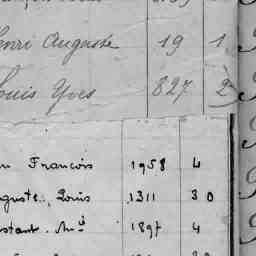 enri Auguste 19 1
Louis Yves 827 2
François 1958 4
guste, Louis 1311 30
stant. M. 1897 4